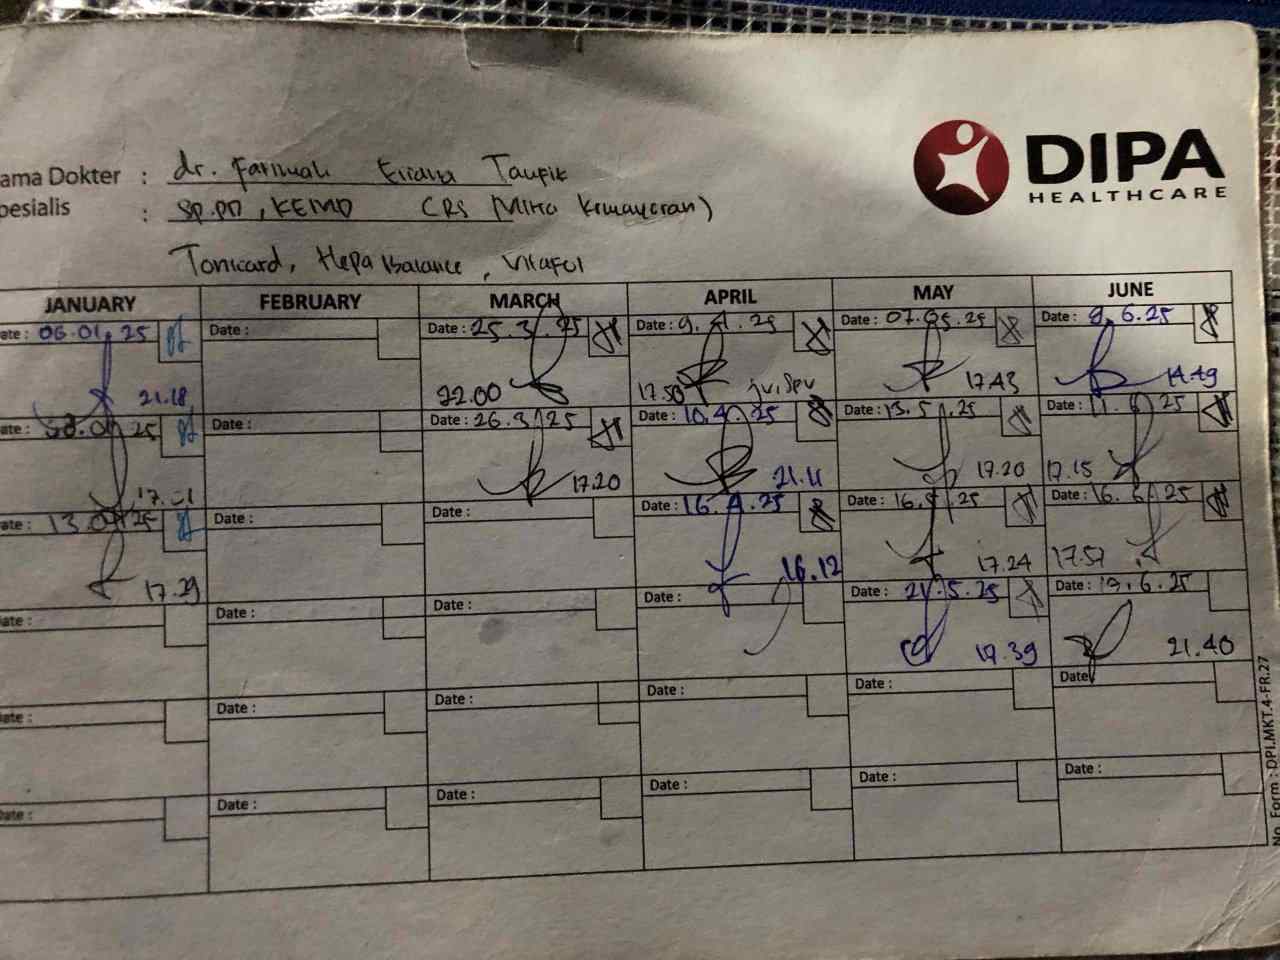 DIPA
HEALTHCARE
ama Dokter : dr. Farimah Eliana Taufik
pesialis : Sp.PD, KEMD CRS (Mitra Kemayoran)
Tonicard, Hepa Balance, Vitafol
JANUARY FEBRUARY MARCH APRIL MAY JUNE
ate : 06.01.25 Date : Date : 25.3.25 Date : 9.4.25 Date : 07.05.25 Date : 9.6.25
21.18 22.00 17.50 17.43 14.49
ate : 25 Date : Date : 26.3.25 Date : 10.4.25 Date : 13.5.25 Date : 11.6.25
17.20 21.11 17.20 17.15
ate : 13.01.25 Date : Date : Date : 16.4.25 Date : 16.5.25 Date : 16.6.25
17.29 16.12 17.24 17.57
ate : Date : Date : Date : Date : 21.5.25 Date : 19.6.25
17.39 21.40
ate : Date : Date : Date : Date : Date
ate : Date : Date : Date : Date : Date :
No. Form : DPI.MKT.4-FR.27